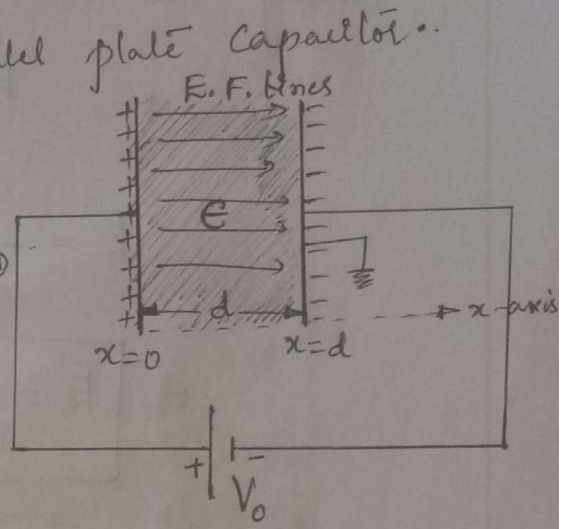 plate capacitor..
E. F. Lines
+ −
+ −
+ −
+ −
+ −
ϵ
+ −
+ −
+ −
+ d − x-axis
x=0 x=d
+ −
V₀